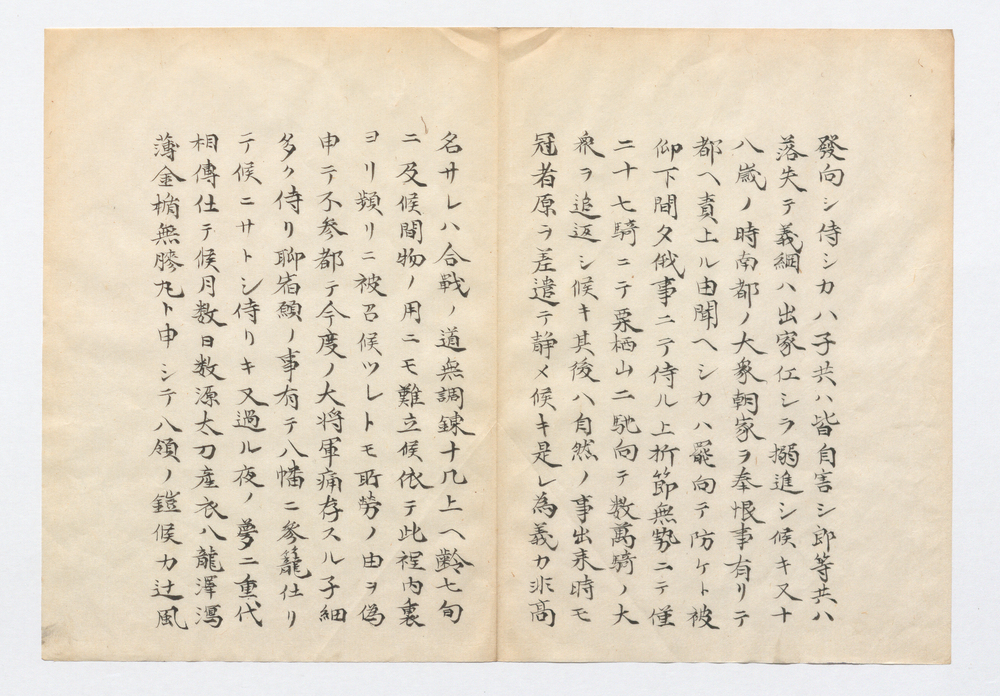 發向シ侍シカハ子共ハ皆自害シ郎等共ハ
落失テ義綱ハ出家仕シヲ搦進シ候キ又十
八歳ノ時南都ノ大衆朝家ヲ奉恨事有リテ
都ヘ責上ル由聞ヘシカハ罷向テ防ケト被
仰下間夕俄事ニテ侍ル上折節無勢ニテ僅
二十七騎ニテ栗栖山ニ馳向テ数萬騎ノ大
衆ヲ追返シ候キ其後ハ自然ノ事出来時モ
冠者原ヲ差遣テ静メ候キ是レ為義カ非高
名サレハ合戰ノ道無調錬十几上ヘ齢七旬
ニ及候間物ノ用ニモ難立候依テ此程内裏
ヨリ頻リニ被召候ツレトモ所勞ノ由ヲ偽
申テ不参都テ今度ノ大将軍痛存スル子細
多ク侍リ聊宿願ノ事有テ八幡ニ参籠仕リ
テ候ニサトシ侍リキ又過ル夜ノ夢ニ重代
相傳仕テ候月数日数源太刀産衣八龍澤瀉
薄金楯無膝丸ト申シテ八領ノ鎧候カ辻風